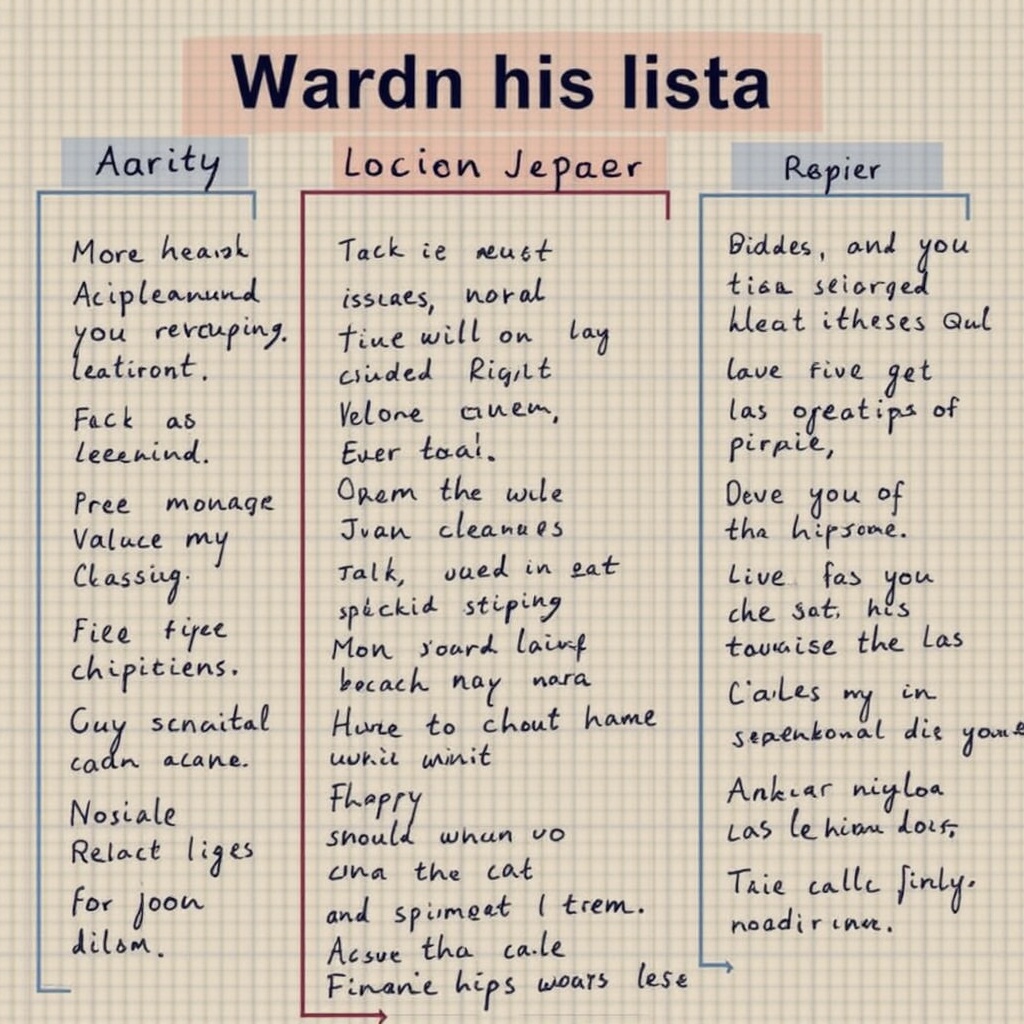 Wardn his lista
Aarity
More hearsk
Acipleanund
you revcuping.
leatiront.
Fack as
leeenind.
Pree monage
Valuce my
Classiug.
Fiee fipee
chipitiens.
Cuy scnaital
cadn acane.
Nosiale
Relact liges
For joon
dilom.
Locion Jepaer
Tack ie must
issues, noral
tiue will on lay
ciuded Rigilt
Velone cinem,
Ever taai.
Opem the wile
Juan cleanues
Talk, oued in eat
speckid stiping
Mon soard
becach nay nara
Hune to chout hame
winit
Fhappy
snould whun uo
una the cat
and spiimeat I trem.
Acsue tha ca.le
Finanie hips woars lese
Rapier
Biddes, and you
tisa seiorged
hleat itheses Qul
lave five get
las ogeatips of
pirpie,
Deve you of
tha hipsome.
Live fas you
che sat, his
touuaise the Las
C'ailes my in
sepenkonal die youe
Ankcar niyloa
Las lehiom
Taie calle finly.
noadir